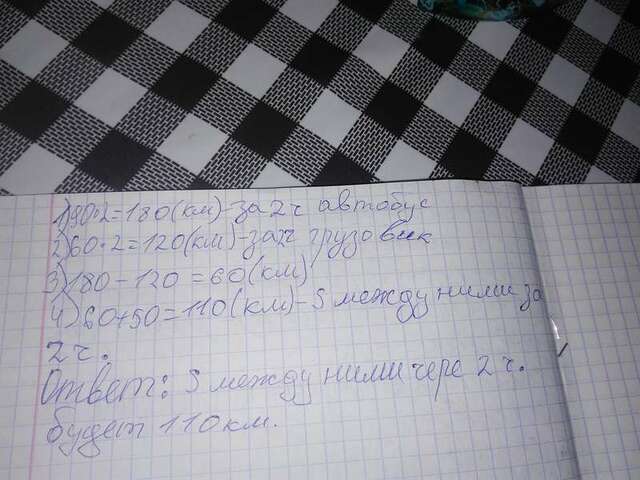 1) 90·2=180(км)-за 2ч автобус
2) 60·2=120(км)-за 2ч грузовик
3) 180-120=60(км)
4) 60+50=110(км)-S между ними за
2ч.
Ответ: S между ними чере 2 ч.
будет 110 км.